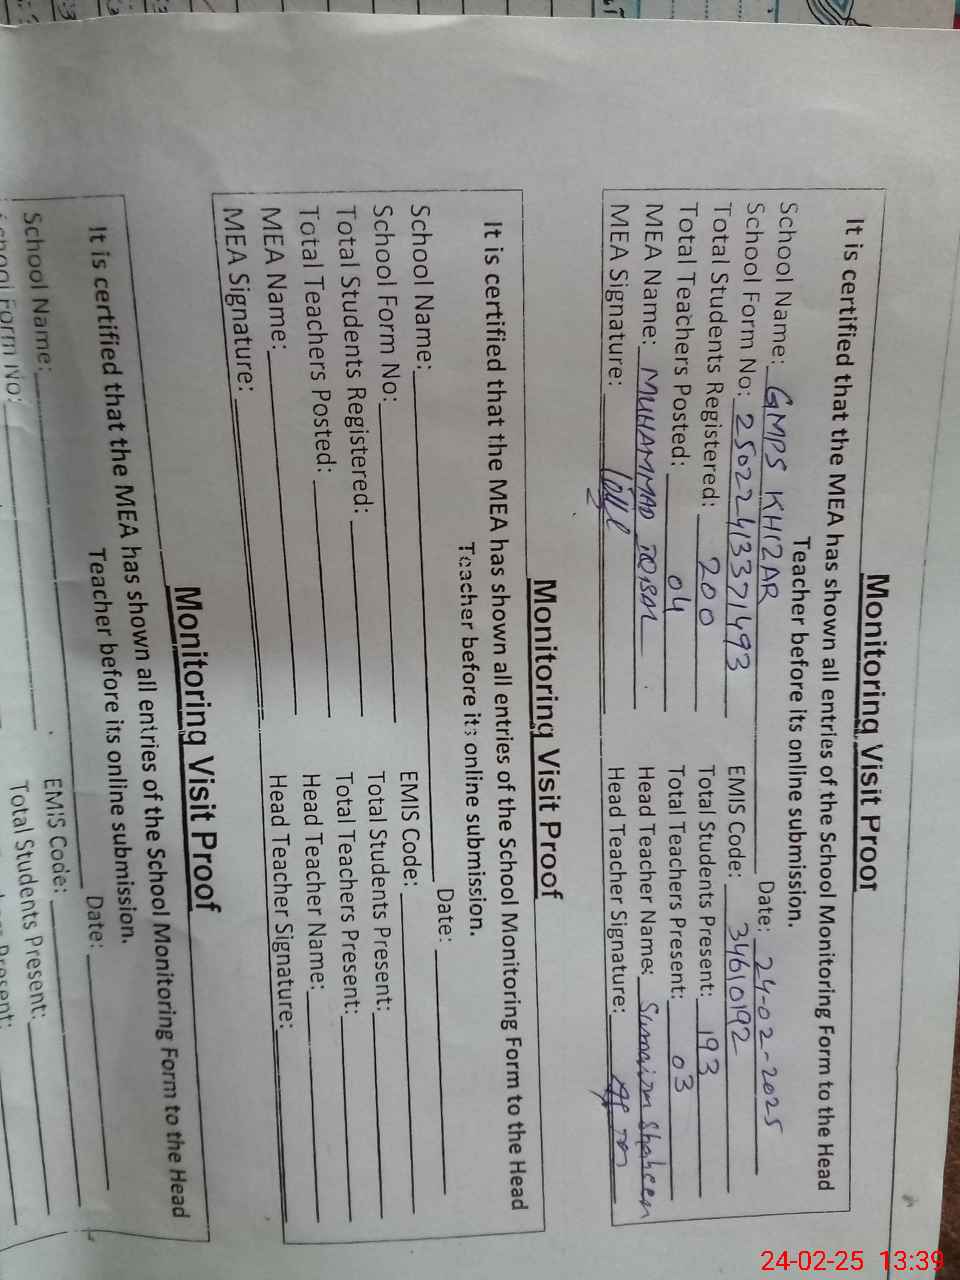 Monitoring Visit Proof
It is certified that the MEA has shown all entries of the School Monitoring Form to the Head
Teacher before its online submission.
School Name: GMPS KHIZAR Date: 24-02-2025
School Form No: 25022413371493 EMIS Code: 34610192
Total Students Registered: 200 Total Students Present: 193
Total Teachers Posted: 04 Total Teachers Present: 03
MEA Name: MUHAMMAD IQBAL Head Teacher Name: Sumaira Shaheen
MEA Signature: Head Teacher Signature:
Monitoring Visit Proof
It is certified that the MEA has shown all entries of the School Monitoring Form to the Head
Teacher before its online submission.
School Name: Date:
School Form No: EMIS Code:
Total Students Registered: Total Students Present:
Total Teachers Posted: Total Teachers Present:
MEA Name: Head Teacher Name:
MEA Signature: Head Teacher Signature:
Monitoring Visit Proof
It is certified that the MEA has shown all entries of the School Monitoring Form to the Head
Teacher before its online submission.
School Name: Date:
School Form No: EMIS Code:
Total Students Present:
24-02-25 13:39